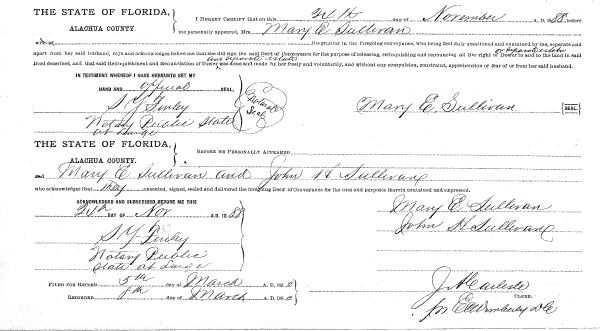 THE STATE OF FLORIDA,
ALACHUA COUNTY.
I HEREBY CERTIFY that on this 24th day of November A. D. 1888, before
me personally appeared, Mrs. Mary E. Sullivan
who is the grantor in the foregoing conveyance, who being first duly questioned and examined by me, separate and
apart from her said husband, says and acknowledges before me that she did sign the said Deed of Conveyance for the purpose of releasing, relinquishing and renouncing all her right of Dower in and to the land in said
or separate estate
Deed described, and that said Relinquishment and Renunciation of Dower and separate estate was done and made by her freely and voluntarily, and without any compulsion, constraint, apprehension or fear of or from her said husband.
IN TESTIMONY WHEREOF I HAVE HEREUNTO SET MY
HAND AND official SEAL.
S. Y. Finley
Notary Public State
at Large
Notarial Seal
Mary E. Sullivan SEAL
THE STATE OF FLORIDA,
ALACHUA COUNTY.
BEFORE ME PERSONALLY APPEARED
Mary E Sullivan and John H Sullivan
who acknowledge that they executed, signed, sealed and delivered the foregoing Deed of Conveyance for the uses and purposes therein contained and expressed.
ACKNOWLEDGED AND SUBSCRIBED BEFORE ME THIS
24th DAY OF Nov A. D. 1888
S Y Finley
Notary Public
State at Large
Mary E Sullivan
John H Sullivan
FILED FOR RECORD 5th day of March A. D. 18
RECORDED 8th day of March A. D. 18
J A Carlisle
CLERK.